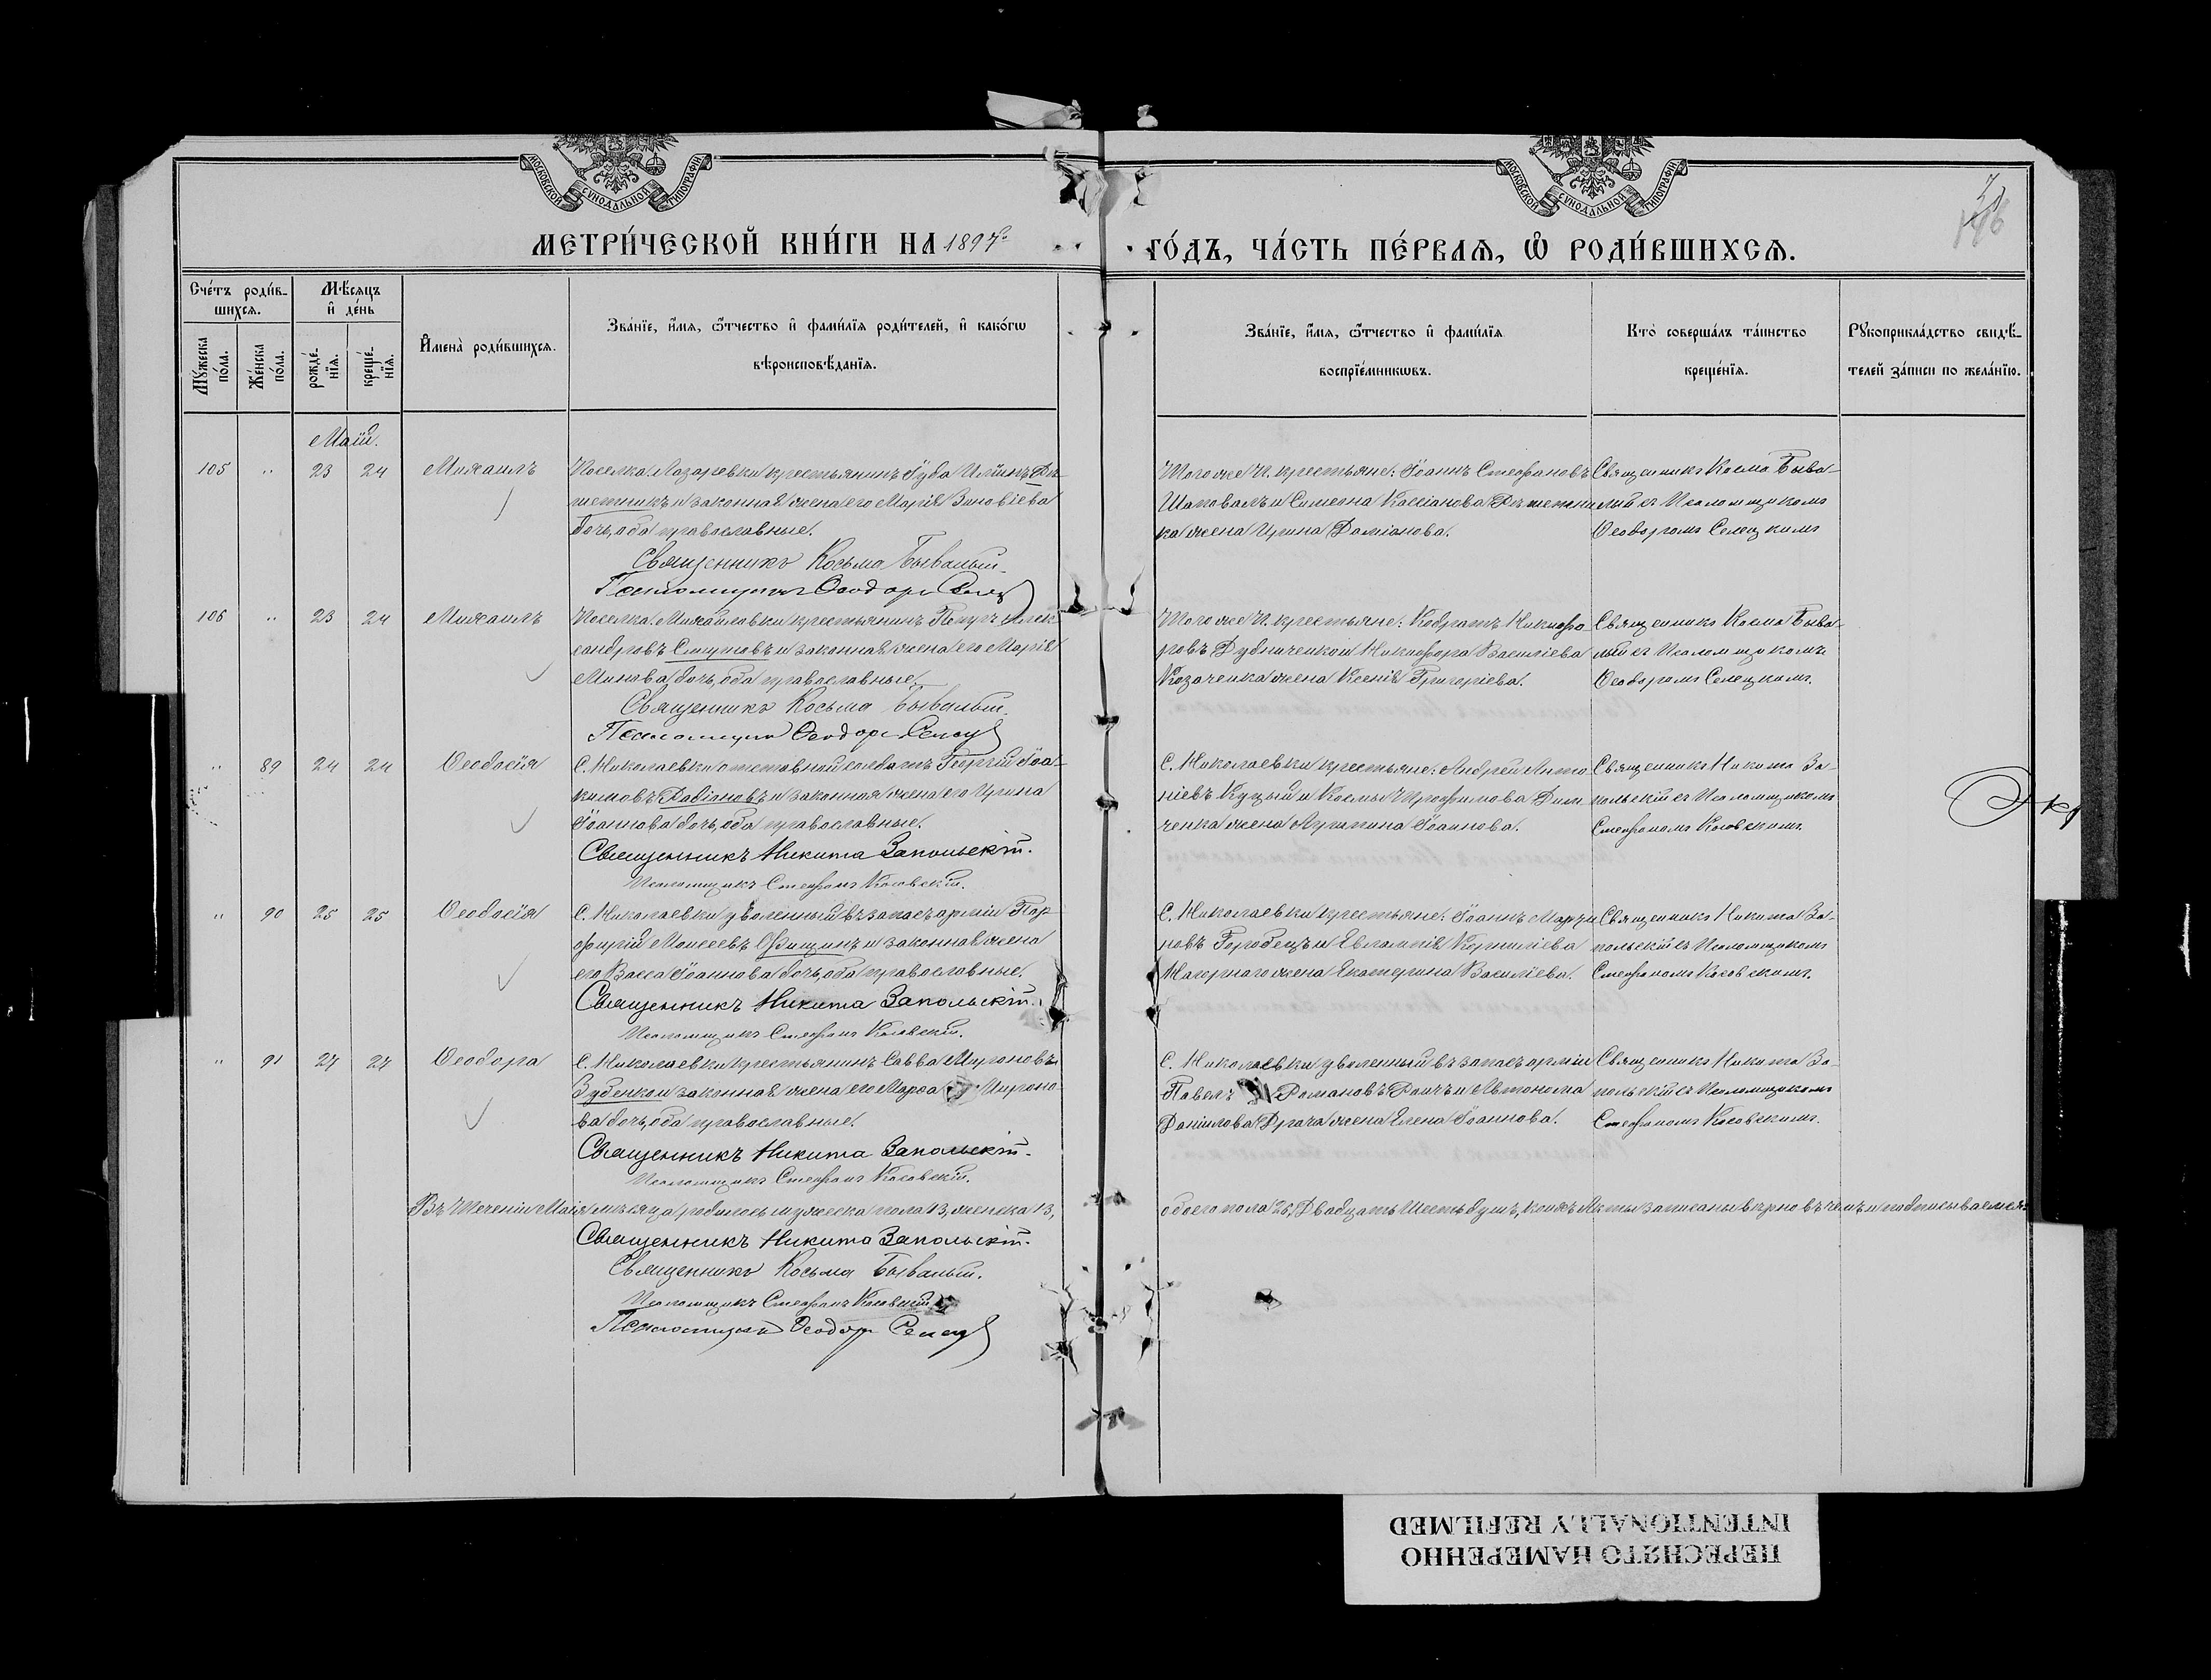 МОСКОВСКОЙ СѴНОДАЛЬНОЙ ТИПОГРАФІИ
МОСКОВСКОЙ СѴНОДАЛЬНОЙ ТИПОГРАФІИ
МЕТРИ́ЧЕСКОЙ КНИ́ГИ НА 1897 ГО́ДЪ, ЧА́СТЬ ПЕ́РВАЯ, Ѡ҆ РОДИ́ВШИХСЯ.
Сче́тъ роди́в-
шихся.
Мꙋ́жеска
по́ла.
Же́нска
по́ла.
Мѣ́сяцъ
и҆ де́нь
рожде́-
нїя.
креще́-
нїя.
И҆мена̀ роди́вшихся.
Зва́нїе, и҆́мя, ѻ҆́тчество и҆ фами́лїя роди́телей, и҆ како́гѡ
вѣроисповѣ́данїя.
Зва́нїе, и҆́мя, ѻ҆́тчество и҆ фами́лїя
воспрїе́мникѡвъ.
Кто̀ соверша́лъ та́инство
креще́нїя.
Рꙋкоприкла́дство свидѣ́-
телей за́писи по жела́нїю.
Маій.
105 " 23 24 Михаилъ
Поселка Лазаревки крестьянинъ Іуда Ильинъ Рѣ-
шетникъ и законная жена его Марія Зиновіева
дочь, оба православные.
Священникъ Косьма Бывалый.
Псаломщикъ Ѳеодоръ Селец
Того же п. крестьяне: Іоаннъ Стефановъ
Шаповалъ и Симеона Кассіанова Рѣшетни
ка жена Ирина Даміанова.
Священникъ Косма Быва-
лый съ Псаломщикомъ
Ѳеодоромъ Селецкимъ
106 " 23 24 Михаилъ
Поселка Михайловки крестьянинъ Петръ Алек-
сандровъ Смутовъ и законная жена его Марія
Минова дочь, оба православные.
Священникъ Косьма Бывалый.
Псаломщикъ Ѳеодоръ Селец
Того же п. крестьяне: Кодратъ Никифо-
ровъ Дубниченко и Никифора Василіева
Козаченка жена Ксенія Григоріева.
Священникъ Косма Быва-
лый съ Псаломщикомъ
Ѳеодоромъ Селецкимъ.
" 89 24 24 Ѳеодосія
С. Николаевки отставной солдатъ Георгій Іоа-
кимовъ Равіановъ и законная жена его Ирина
Іоаннова дочь, оба православные.
Священникъ Никита Запольскій.
Псаломщикъ Стефанъ Косовскій.
С. Николаевки крестьяне: Андрей Анто
ніевъ Куцый и Космы Трофимова
ченка жена Агрипина Іоаннова.
Священникъ Никита За-
польскій съ Псаломщикомъ
Стефаномъ Косовскимъ.
" 90 25 25 Ѳеодосія
С. Николаевки уволенный въ запасъ арміи Пор-
фирій Моисеевъ Фищинъ и законная жена
его Васса Іоаннова дочь, оба православные.
Священникъ Никита Запольскій.
Псаломщикъ Стефанъ Косовскій.
С. Николаевки крестьяне: Іоаннъ Марти
новъ Городецъ и Евлампія Корниліева
Нагорнаго жена Екатерина Василіева.
Священникъ Никита За-
польскій съ Псаломщикомъ
Стефаномъ Косовскимъ.
" 91 27 27 Ѳеодора
С. Николаевки крестьянинъ Савва Мироновъ
Зубенко и законная жена его Марфа Мироно-
ва дочь, оба православные.
Священникъ Никита Запольскій.
Псаломщикъ Стефанъ Косовскій.
С. Николаевки уволенный въ запасъ арміи
Павелъ Романовъ Рачъ и Автонома
Даніилова Драча жена Елена Іоаннова.
Священникъ Никита За-
польскій съ Псаломщикомъ
Стефаномъ Косовскимъ.
Въ теченіи Маія мѣсяца родилось мужеска пола 13, женска 13, обоего пола 26, Двадцать Шесть душъ, коихъ Акты записаны вѣрно въ чемъ и подписываемся:
Священникъ Никита Запольскій.
Священникъ Косьма Бывалый.
Псаломщикъ Стефанъ Косовскій
Псаломщикъ Ѳеодоръ Селец
ПЕРЕСНЯТО НАМЕРЕННО
INTENTIONALLY REFILMED